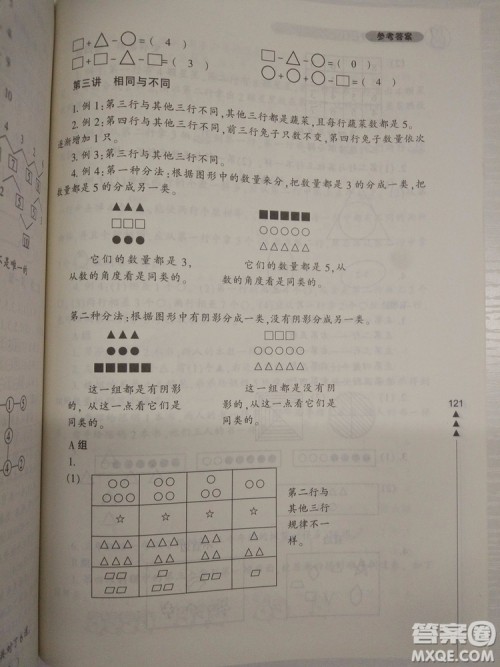 参考答案
□+△-○=( 4 ) △+○-□=( 0 )
□+□-△-□=( 3 ) ○+○-○+□=( 4 )
第三讲 相同与不同
1. 例1:第三行与其他三行不同,其他三行都是蔬菜,且每行蔬菜数都是5。
2. 例2:第四行与其他三行不同,前三行兔子只数不变,第四行兔子数量依次
逐渐增加1只。
3. 例3:第三行与其他三行不同。
4. 例4:第一种分法:根据图形中的数量来分,把数量都是3的分成一类,把
数量都是5的分成另一类。
▲▲▲ ■■■■■
□□□ ○○○○○
●●● △△△△△
它们的数量都是3,
从数的角度看是同类的。
它们的数量都是5,从
数的角度看是同类的。
第二种分法:根据图形中有阴影分成一类,没有阴影分成另一类。
▲▲▲ □□□
●●● ○○○○○
■■■■■ △△△△△
这一组都是有阴影
的,从这一点看它们是
同类的。
这一组都是没有阴
影的,从这一点看它们是
同类的。
121
A组
1.
(1)
第二行与
其他三行
规律不一
样。
答案圈
MXQE.COM